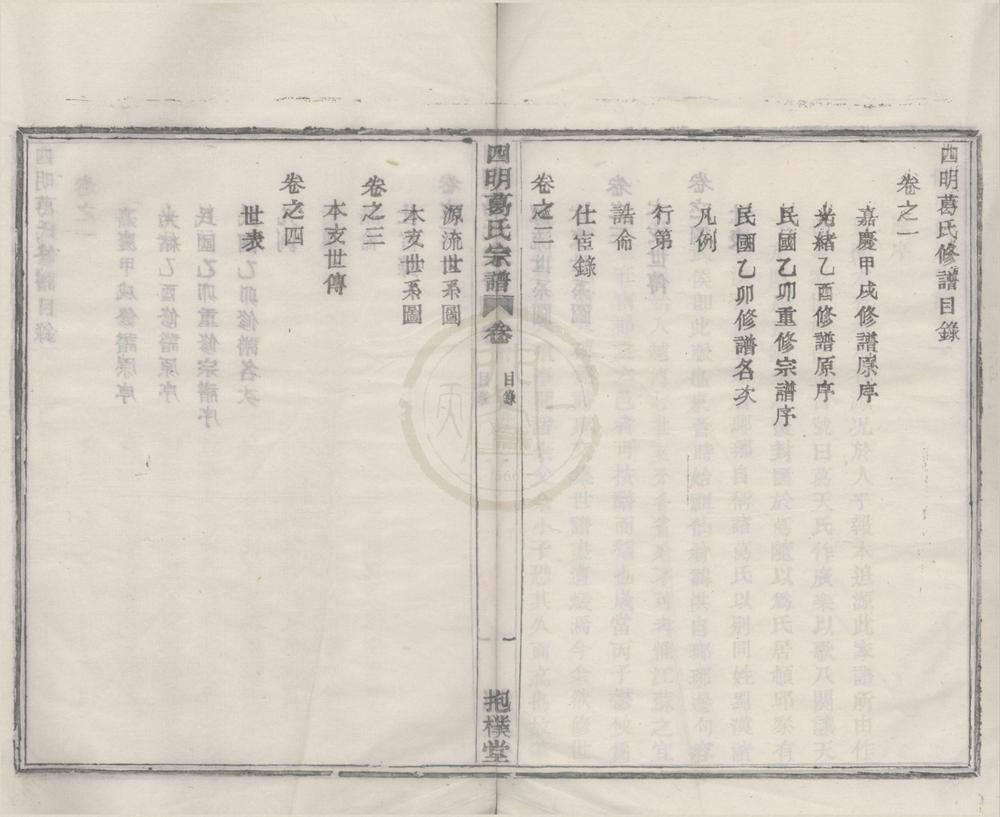 四明葛氏修譜目錄
卷之一
嘉慶甲戌修譜原序
光緒乙酉修譜原序
民國乙卯重修宗譜序
民國乙卯修譜名次
凡例
行第
誥命
仕宦錄
卷之二
四明葛氏宗譜 卷
目錄
一
抱樸堂
源流世系圖
本支世系圖
卷之三
本支世傳
卷之四
世表